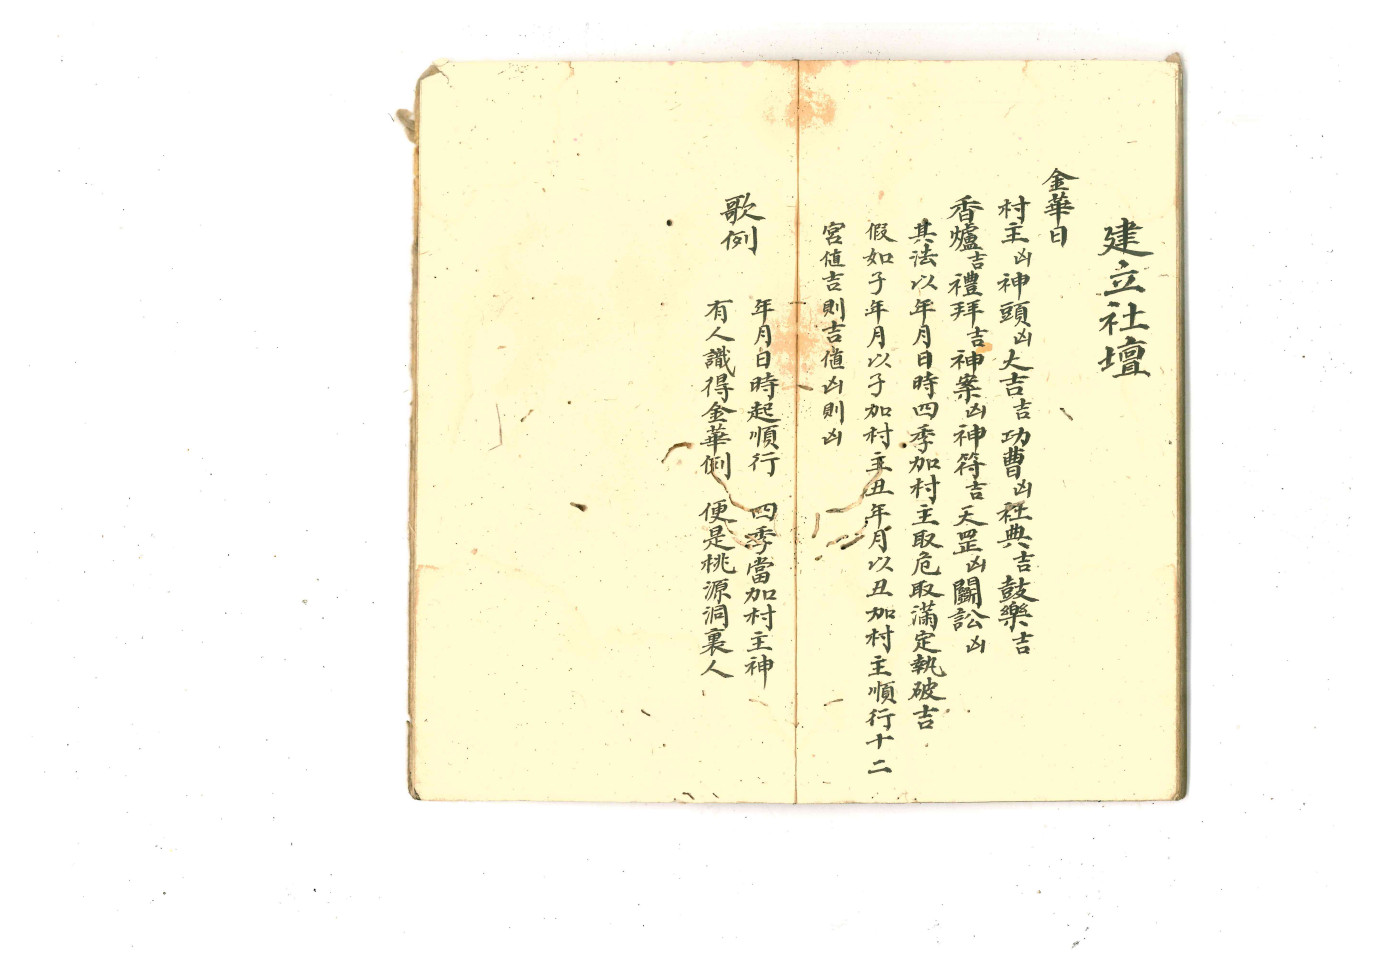 建立社壇
金華日
村主凶神頭凶大吉吉功曹凶社典吉鼓樂吉
香爐吉禮拜吉神案凶神符吉天罡凶鬭訟凶
其法以年月日時四季加村主取危取滿定執破吉
假如子年月以子加村主丑年月以丑加村主順行十二
宮値吉則吉値凶則凶
歌例
年月日時起順行 四季當加村主神
有人識得金華例 便是桃源洞裏人